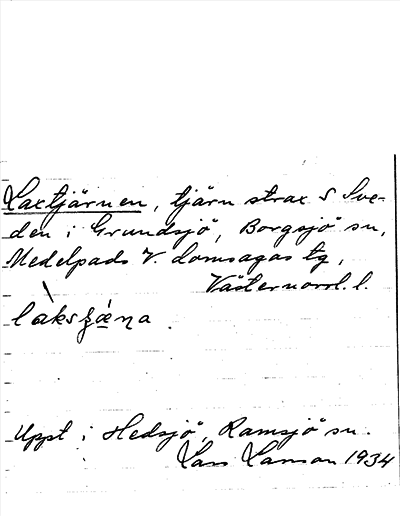 Laxtjärnen, tjärn strax S Sve-
den i Grundsjö, Borgsjö sn,
Medelpads V. domsagas tg,
Västernorrl. l.
lȧksʒæ̀ṇa.
Uppt i Hedsjö, Ramsjö sn.
Lars Larsson 1934